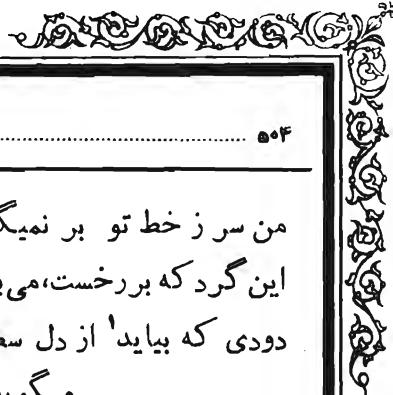 ۵۰۴
من سر ز خط تو بر
این گرد که بر رخست،
دودی که بیاید۱ از دل